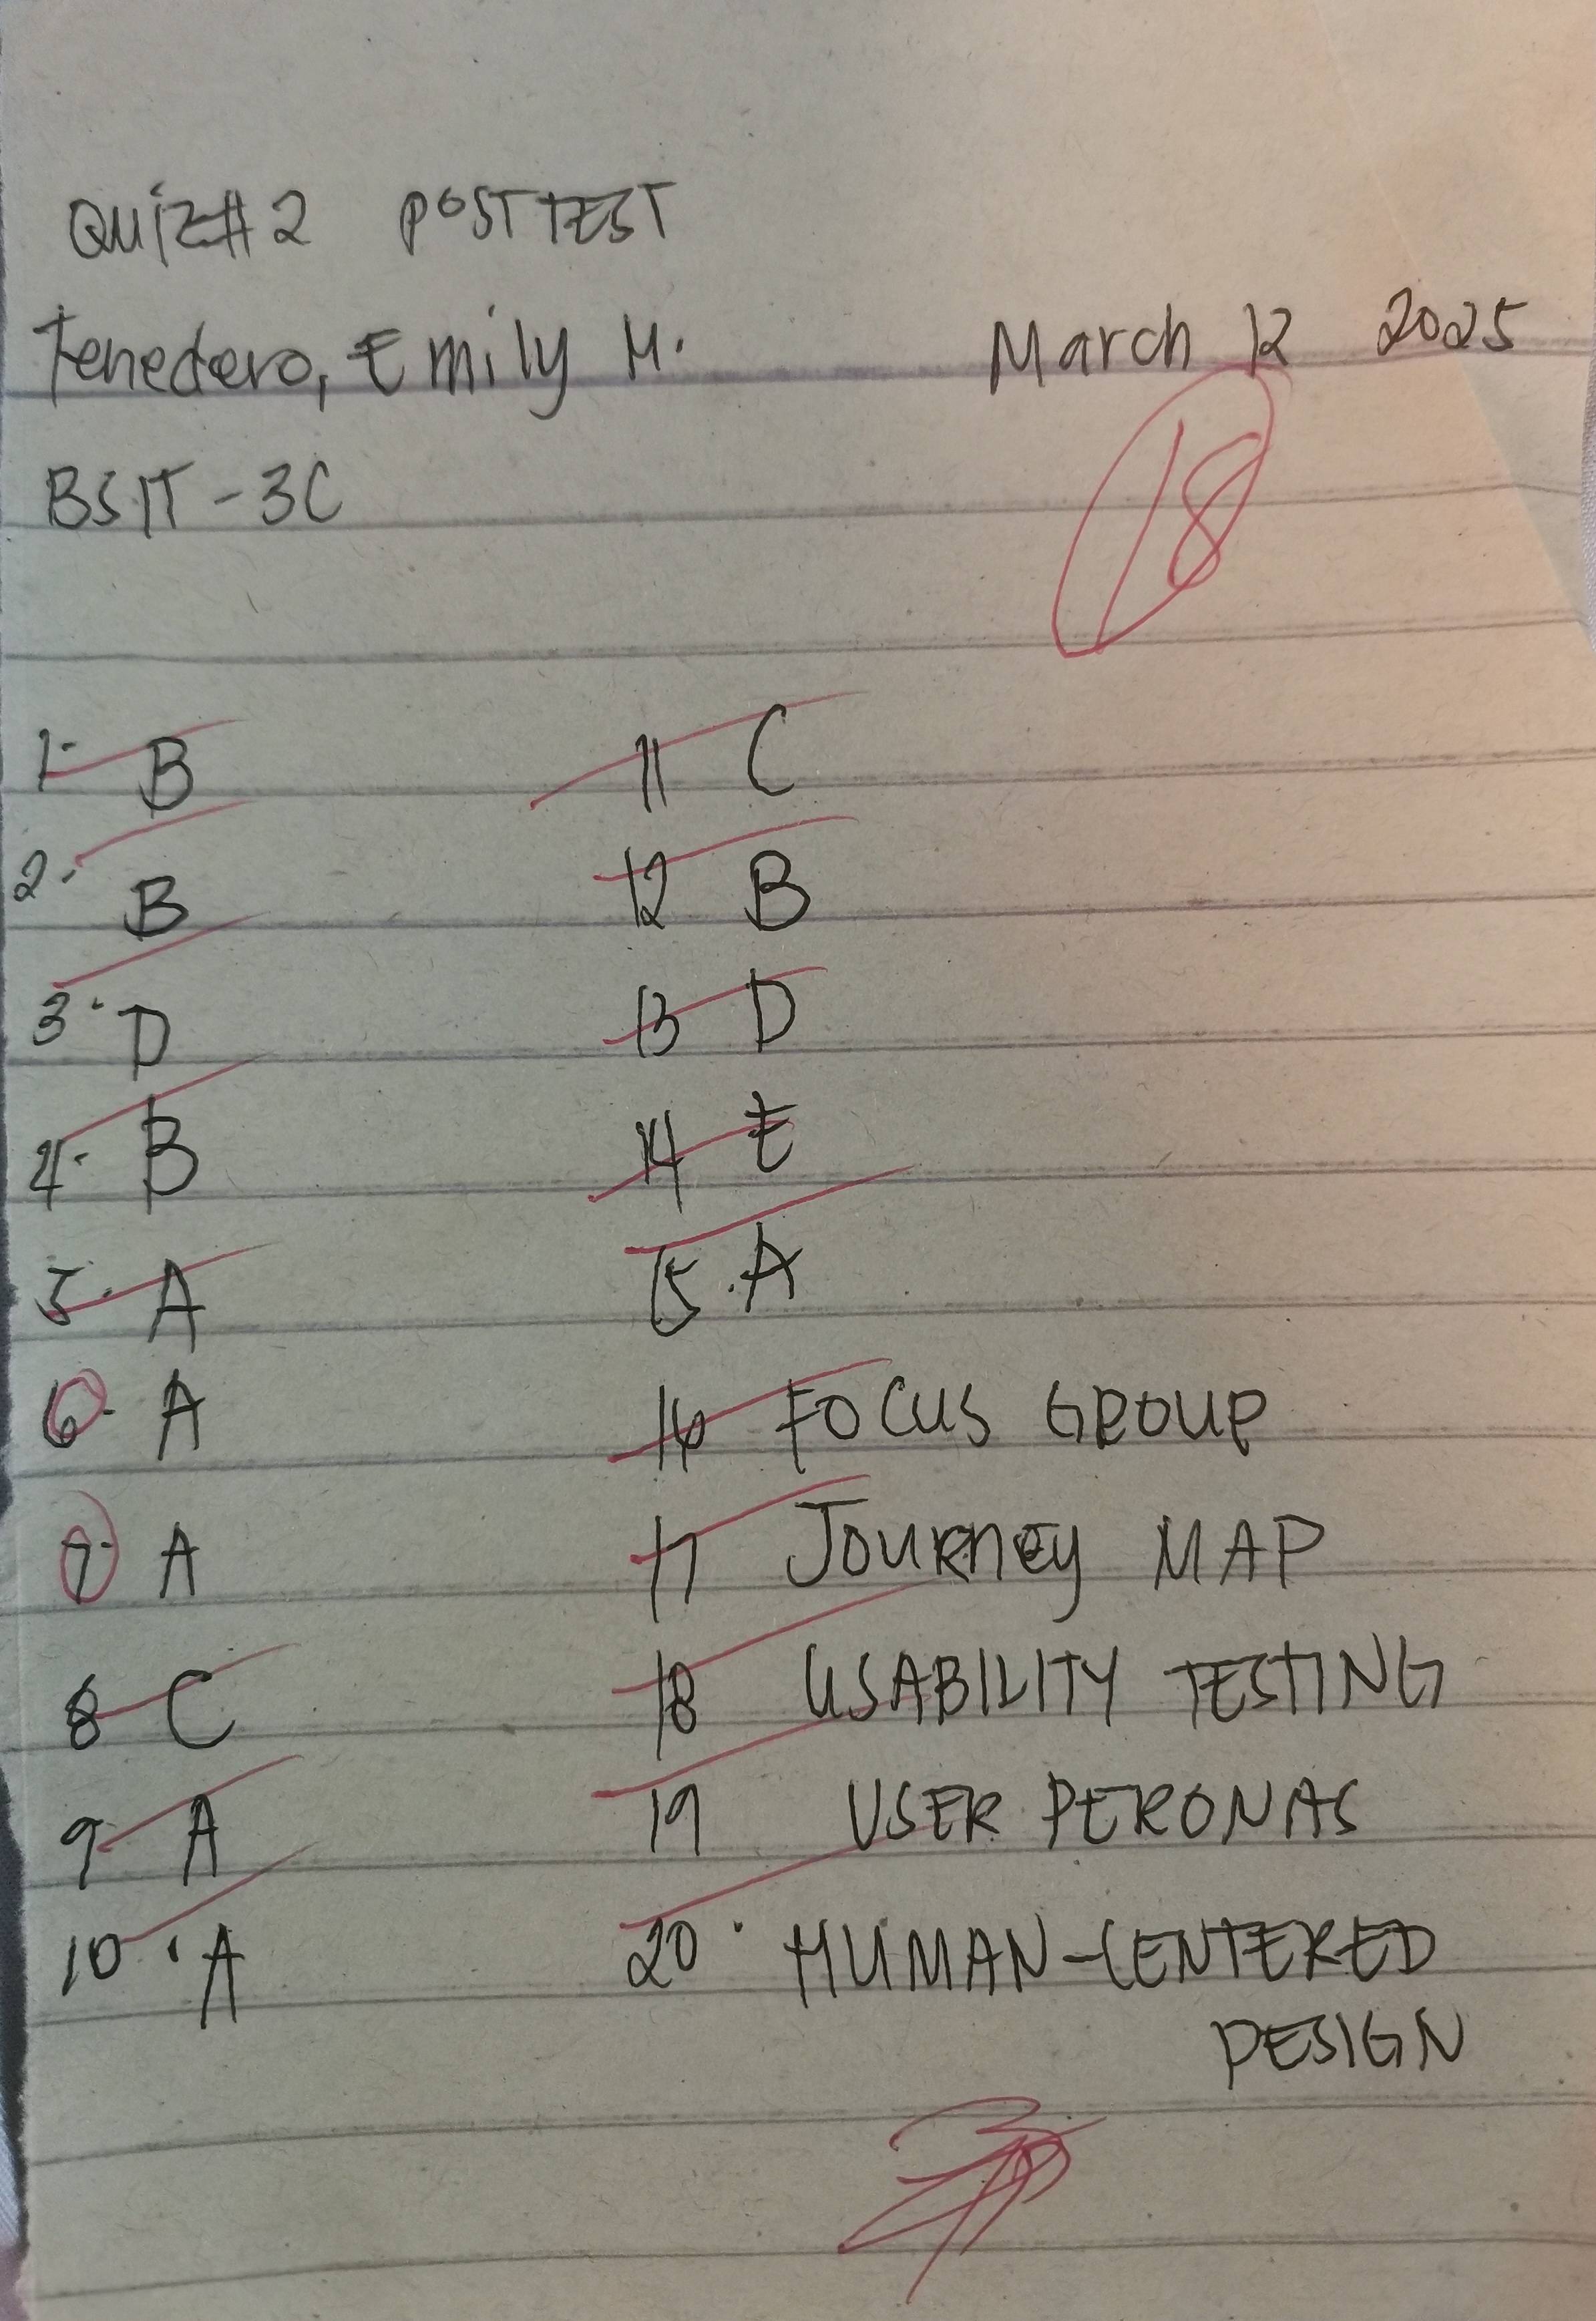 QUIZ#2 POSTTEST
Tenedero, Emily M. March 12 2025
BSIT-3C
18
1. B
2. B
3. D
4. B
5. A
6. A
7. A
8 C
9 A
10. A
11 C
12 B
13 D
14 E
15. A
16 FOCUS GROUP
17 JOURNEY MAP
18 USABILITY TESTING
19 USER PERONAS
20. HUMAN-CENTERED
DESIGN